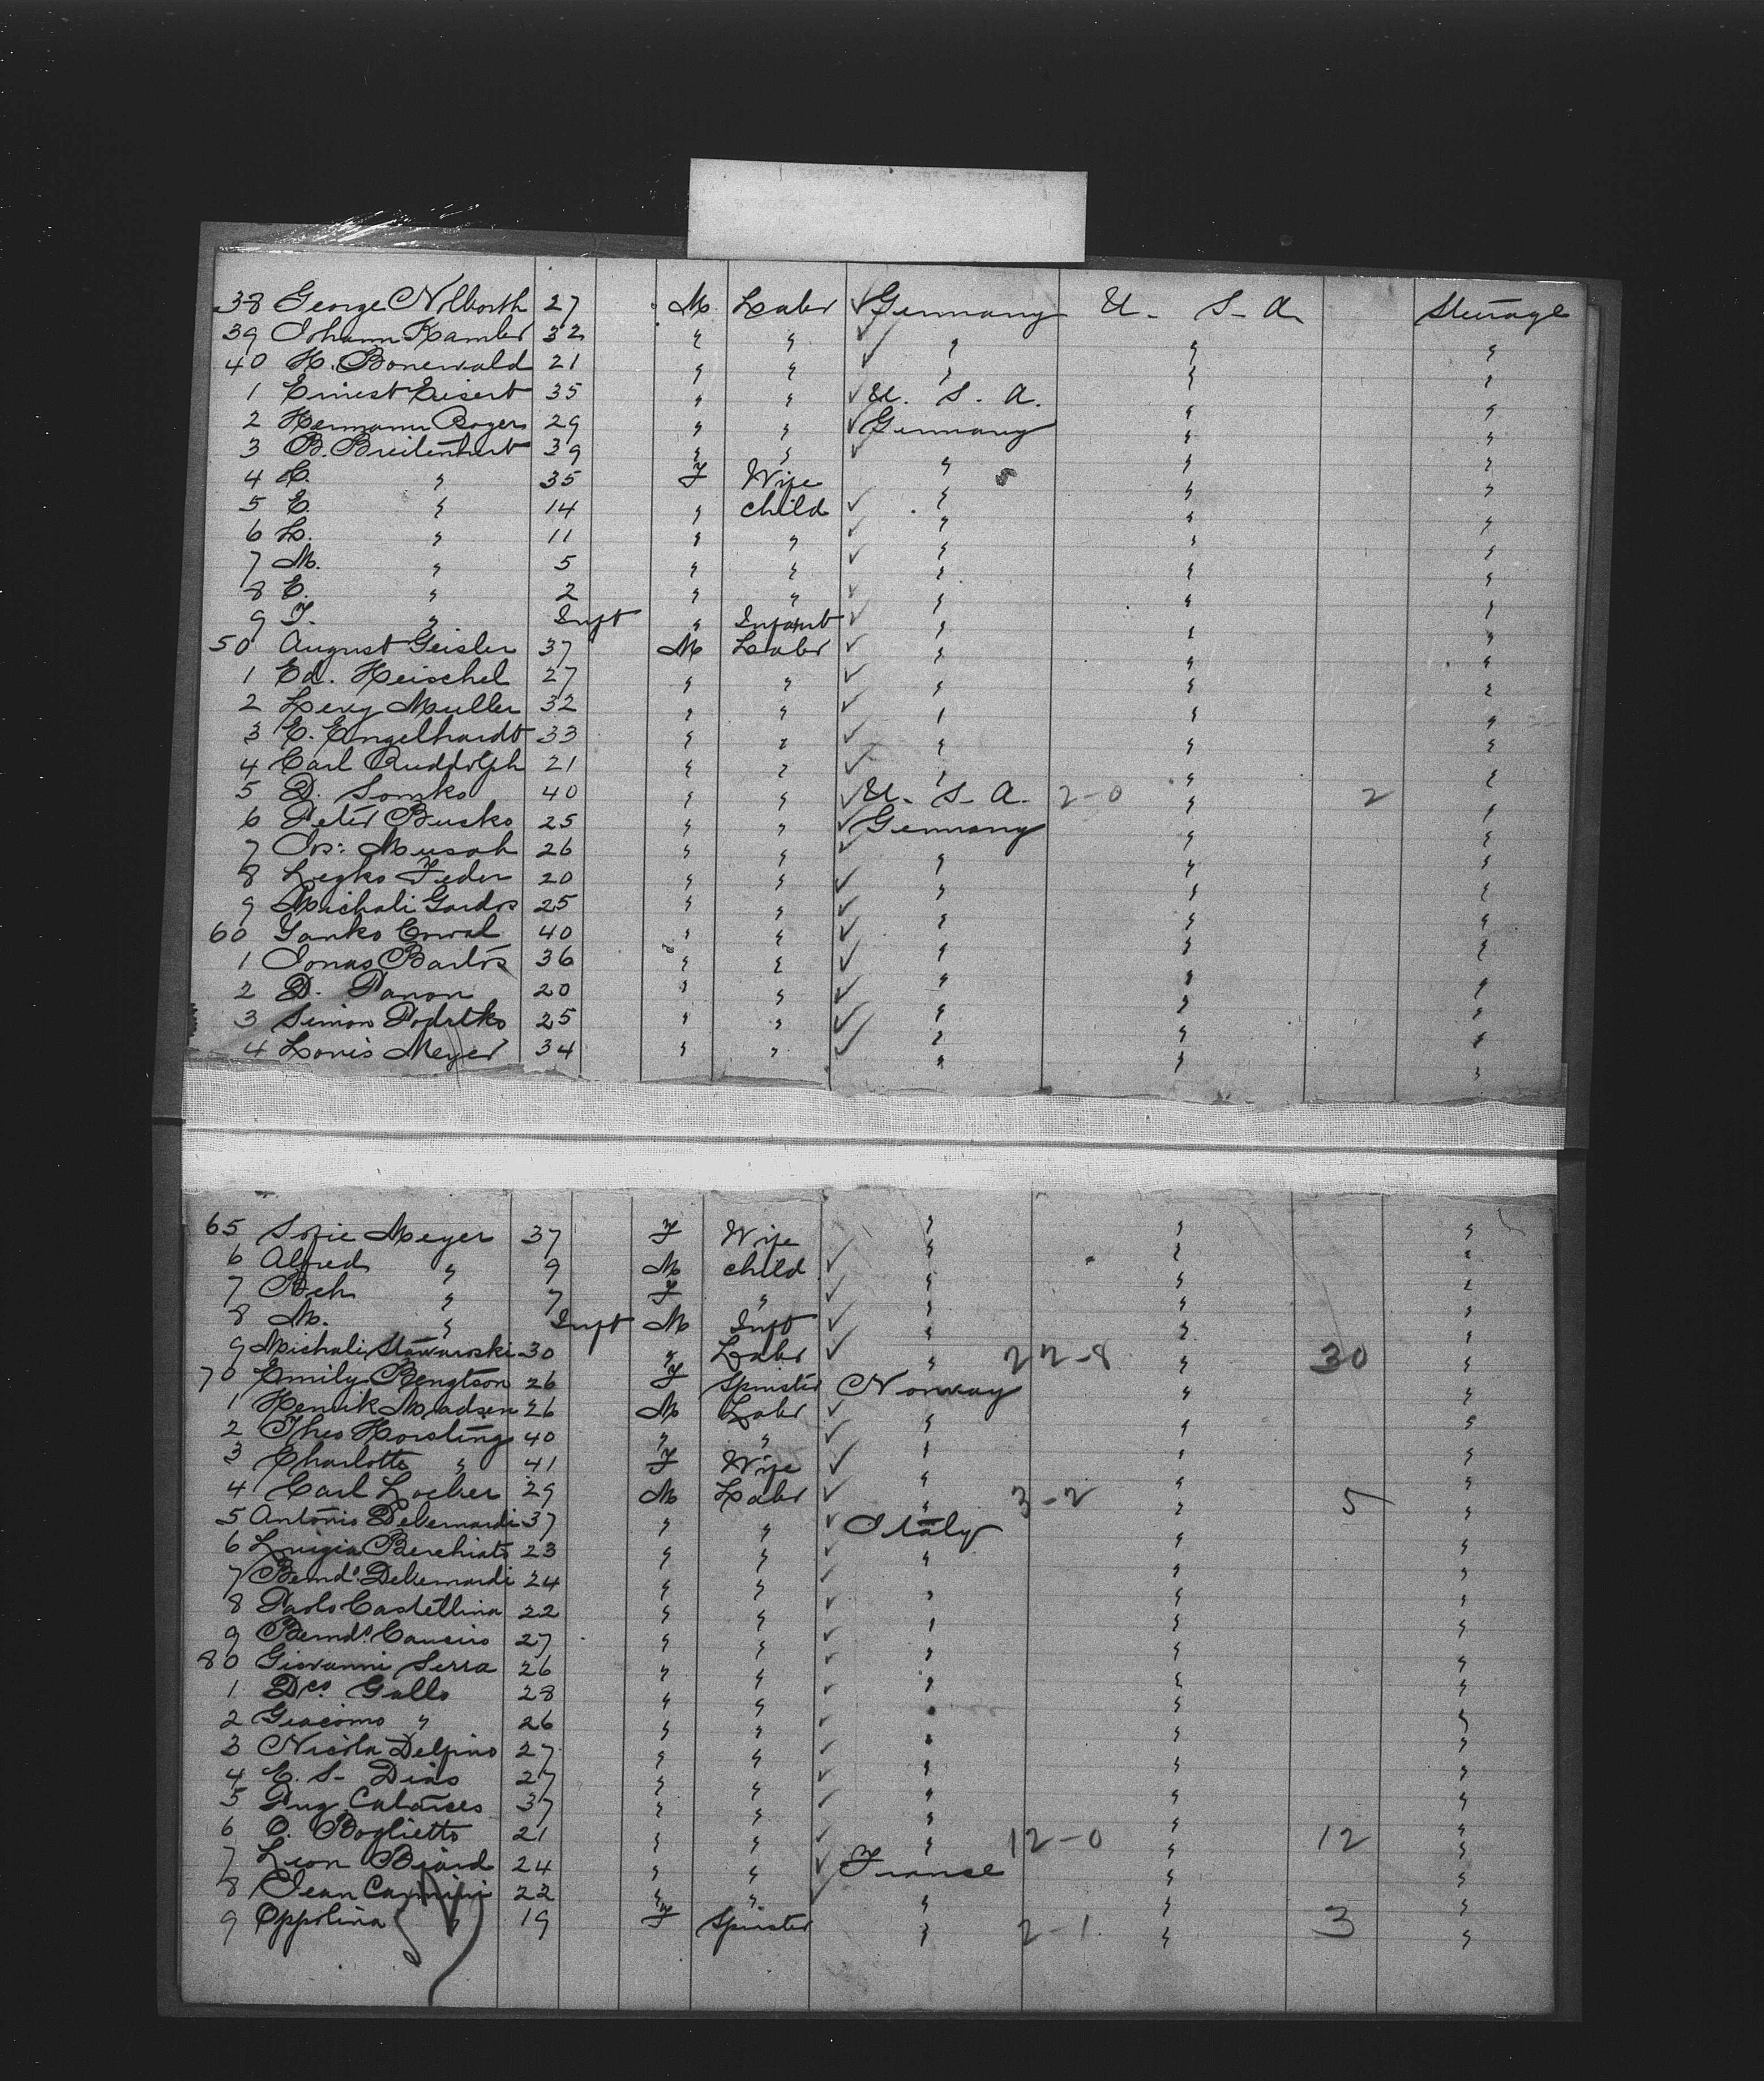 38 George Nolborth 27 M Labr ✓ Germany U. S. A. Steerage
39 Johann Kambr 32 " " ✓ " " "
40 H. Bonewald 21 " " ✓ " " "
1 Ernest Eisert 35 " " ✓ U. S. A. " "
2 Hermann Boger 29 " " ✓ Germany " "
3 B. Breitenhert 39 " " ✓ " " "
4 C. " 35 F Wife " " "
5 E. " 14 " child ✓ " " "
6 L. " 11 " " ✓ " " "
7 M. " 5 " " ✓ " " "
8 E. " 2 " " ✓ " " "
9 F. " Inft " Infant ✓ " " "
50 August Geisler 37 M Labr ✓ " " "
1 Ed. Heischel 27 " " ✓ " " "
2 Levy Muller 32 " " ✓ " " "
3 E. Engelhardt 33 " " ✓ " " "
4 Carl Ruddolph 21 " " ✓ " " "
5 D. Somko 40 " " ✓ U. S. A. 2-0 " 2 "
6 Peter Busko 25 " " ✓ Germany " "
7 Jos: Musah 26 " " ✓ " " "
8 Legko Feder 20 " " ✓ " " "
9 Michali Gordos 25 " " ✓ " " "
60 Yanko 40 " " ✓ " " "
1 Jonas Bartos 36 " " ✓ " " "
2 D. Panon 20 " " ✓ " " "
3 Simon 25 " " ✓ " " "
4 Louis Meyer 34 " " ✓ " " "
65 Sofie Meyer 37 F Wife " " "
6 Alfred " 9 M child ✓ " " "
7 " 7 F " ✓ " " "
8 M. " Inft M Inft ✓ " " "
9 Michali 30 " Labr ✓ " 22-8 " 30 "
70 Emily Bengtson 26 F Spinster Norway " "
1 Henrik Madsen 26 M Labr ✓ " " "
2 Theo Horsting 40 " " ✓ " " "
3 Charlotte " 41 F Wife ✓ " " "
4 Carl Locher 29 M Labr ✓ " 3-2 " 5 "
5 Antonio Debernardi 37 " " ✓ Italy " "
6 Luigia Berchiato 23 " " ✓ " " "
7 Berndo. Debernardi 24 " " ✓ " " "
8 Paolo Castellina 22 " " ✓ " " "
9 Berndo. 27 " " ✓ " " "
80 Giovanni Serra 26 " " ✓ " " "
1 Dco. Gallo 28 " " ✓ " " "
2 Giacomo " 26 " " ✓ " " "
3 Nicola Delpino 27 " " ✓ " " "
4 E. S. Dino 27 " " ✓ " " "
5 37 " " ✓ " " "
6 O. Boglietto 21 " " ✓ " 12-0 " 12 "
7 Leon Biard 24 " " ✓ France " "
8 Jean 22 " " ✓ " " "
9 Oppolina " 19 F Spinster " 2-1 " 3 "